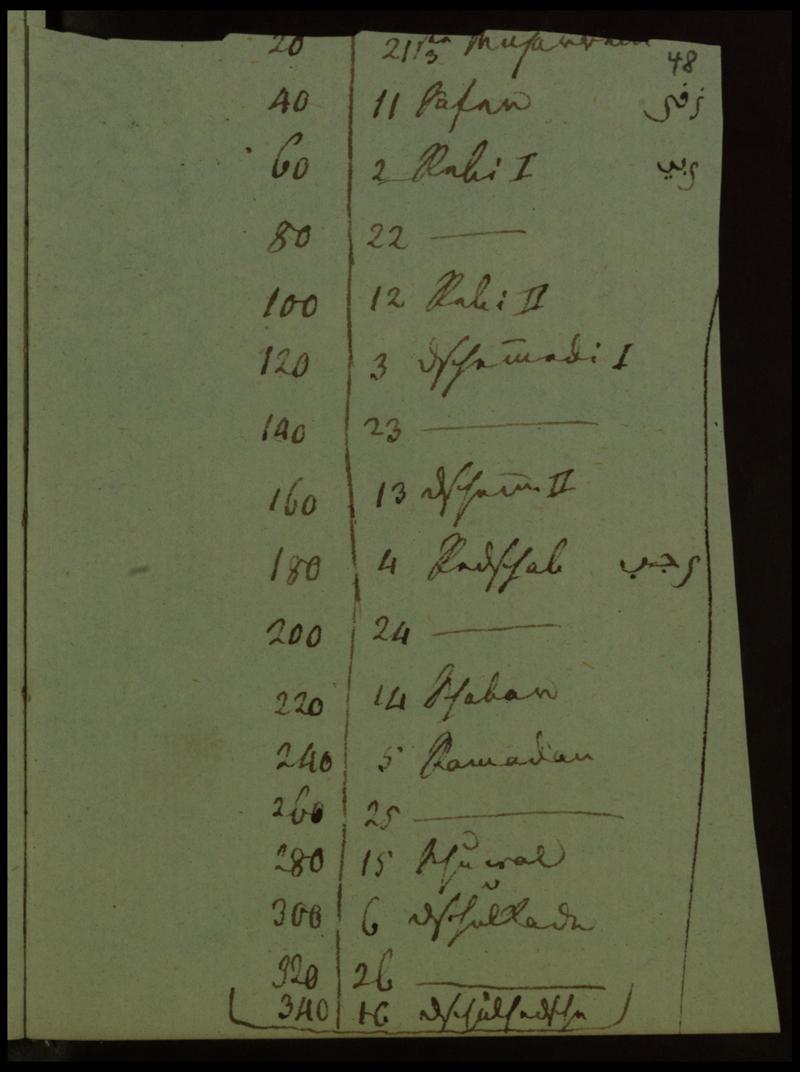 20 21
48
40 11 Safar
60 2 Rabi I
80 22 ―
100 12 Rabi II
120 3 Dschem̅adi I
140 23 ―
160 13 Dschem̅ II
180 4 Redschab رجب
200 24 ―
220 14 Schaban
240 5 Ramadan
260 25 ―
280 15 Schuwal
300 6 Dschulkade
320 26 ―
340 16 Dschulhedsche